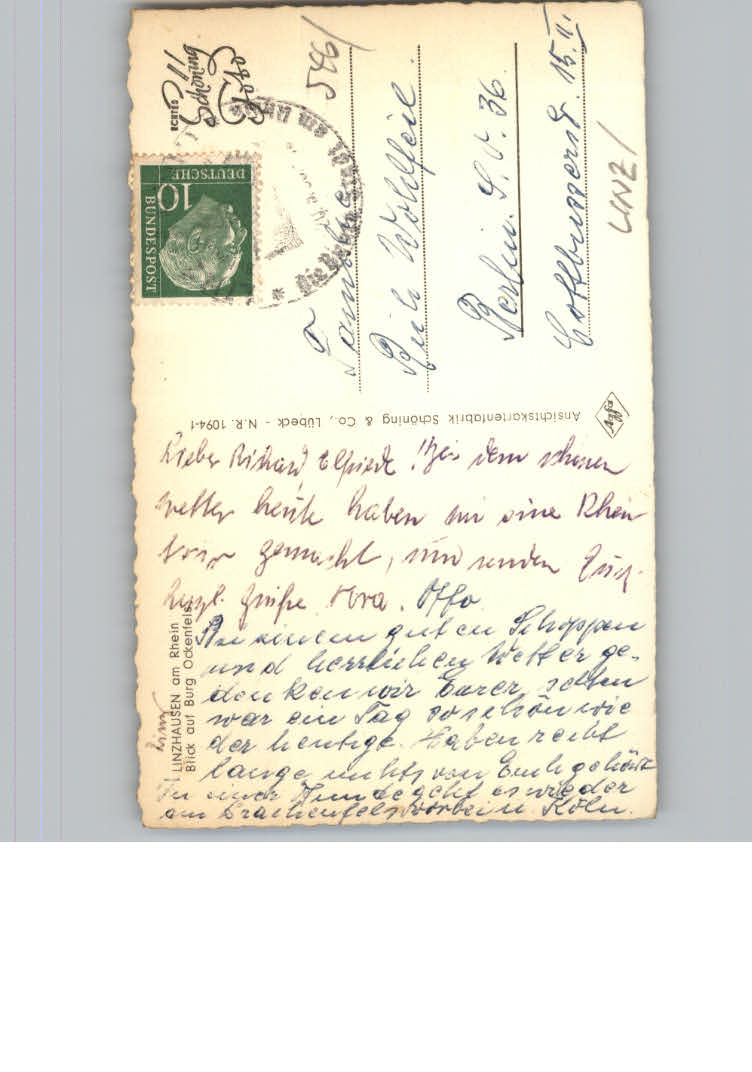 ECHTES
Schöning
Foto
546/
10
DEUTSCHE
BUNDESPOST
am Rhein
Familie
Rich. Wohlfeil.
Berlin. S.O. 36.
Cottbusserstr. 15.II.
LINZ/
Ansichtskartenfabrik Schöning & Co., Lübeck - N.R. 1094-1
Lieber Richard, Elfriede! Bei dem schönen
Wetter heute haben wir eine Rhein
tour gemacht, und senden Euch
herzl. Grüße Otto.
LINZHAUSEN am Rhein
Blick auf Burg Ockenfels
Linz
Bei einem guten Schoppen
und herrlichen Wetter ge-
denken wir Eurer, selten
war ein Tag so schön wie
der heutige. Haben recht
lange nichts von Euch gehört
In einer Stunde geht es wieder
am Drachenfels vorbei n. Köln.